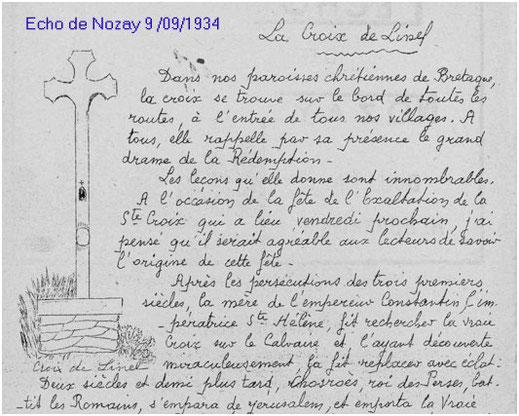 Echo de Nozay 9 /09/1934
La Croix de Linel
Dans nos paroisses chrétiennes de Bretagne,
la croix se trouve sur le bord de toutes les
routes, à l'entrée de tous nos villages. A
tous, elle rappelle par sa présence le grand
drame de la Rédemption -
Les leçons qu'elle donne sont innombrables.
A l'occasion de la fête de l'Exaltation de la
Ste Croix qui a lieu vendredi prochain, j'ai
pensé qu'il serait agréable aux lecteurs de savoir
l'origine de cette fête -
Après les persécutions des trois premiers
siècles, la mère de l'empereur Constantin l'im
- pératrice Ste Hélène, fit rechercher la vraie
Croix sur le Calvaire et l'ayant découverte
miraculeusement, la fit replacer avec éclat.
Croix de Linel
Deux siècles et demi plus tard, Chosroès, roi des Perses, bat
- tit les Romains, s'empara de Jérusalem, et emporta la Vraie